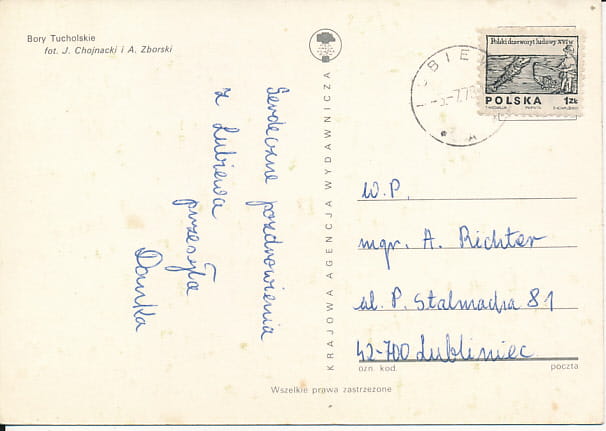 Bory Tucholskie
fot. J. Chojnacki i A. Zborski
Serdeczne pozdrowienia
z Lubiewa
przesyła
Danka
KRAJOWA AGENCJA WYDAWNICZA
Polski drzeworyt ludowy XVI w
POLSKA 1ZŁ
W.P.
mgr. A. Richter
ul. P. Stalmacha 81
42-700 Lubliniec
ozn. kod. poczta
Wszelkie prawa zastrzeżone